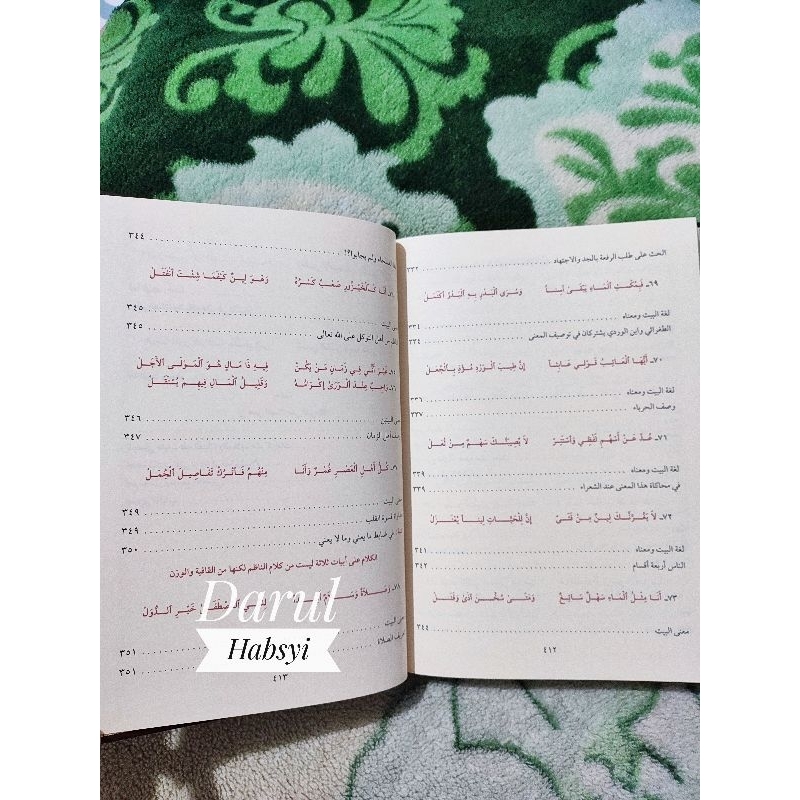 الحث على طلب الرفعة بالجد والاجتهاد ٣٣٢
٦٩ـ فَبِمُكْثِ الْمَاءِ يَبْقَى آسِناً وَسُرَى الْبَدْرِ بِهِ الْبَدْرُ اكْتَمَلْ
لغة البيت ومعناه ٣٣٤
الطغرائي وابن الوردي يشتركان في توصيف المعنى ٣٣٤
٧٠ـ أَيُّهَا الْعَائِبُ قَوْلِي عَابِثاً إِنَّ طِيبَ الْوَرْدِ مُؤْذٍ بِالْجُعَلْ
لغة البيت ومعناه ٣٣٦
وصف الحرباء ٣٣٧
٧١ـ عُدْ عَنْ أَسْهُمِ لَفْظِي وَاسْتَتِرْ لاَ يُصِيبَنَّكَ سَهْمٌ مِنْ ثُعَلْ
لغة البيت ومعناه ٣٣٩
في محاكاة هذا المعنى عند الشعراء ٣٣٩
٧٢ـ لاَ يَغُرَّنَّكَ لِينٌ مِنْ فَتًى إِنَّ لِلْحَيَّاتِ لِيناً يُعْتَزَلْ
لغة البيت ومعناه ٣٤١
الناس أربعة أقسام ٣٤٢
٧٣ـ أَنَا مِثْلُ الْمَاءِ سَهْلٌ سَائِغٌ وَمَتَى سُخِّنَ آذَى وَقَتَلْ
معنى البيت ٣٤٤
٤١٢
ولم يجابوا؟! ٣٤٤
أَنَا كَالْخَيْزُورِ صَعْبٌ كَسْرُهُ وَهُوَ لِينٌ كَيْفَمَا شِئْتَ انْفَتَلْ
البيت ٣٤٥
من أهل التوكل على الله تعالى ٣٤٥
غَيْرَ أَنِّي فِي زَمَنٍ مَنْ يَكُنْ فِيهِ ذَا مَالٍ هُوَ الْمَوْلَى الأَجَلّْ
وَاجِبٌ عِنْدَ الْوَرَى إِكْرَامُهُ وَقَلِيلُ الْمَالِ فِيهِمْ يُسْتَقَلّْ
البيتين ٣٤٦
أهل الزمان ٣٤٧
كُلُّ أَهْلِ الْعَصْرِ غُمْرٌ وَأَنَا مِنْهُمُ فَاتْرُكْ تَفَاصِيلَ الْجُمَلْ
البيت ٣٤٩
قسوة القلب ٣٤٩
في ضابط ما يعني وما لا يعني ٣٥٠
الكلام على أبيات ثلاثة ليست من كلام الناظم لكنها من القافية والوزن
وَصَلاَةٌ وَسَلاَمٌ الْمُصْطَفَى خَيْرِ الدُّوَلْ
البيت ٣٥١
تعريف الصلاة ٣٥١
٤١٣
Darul
Habsyi